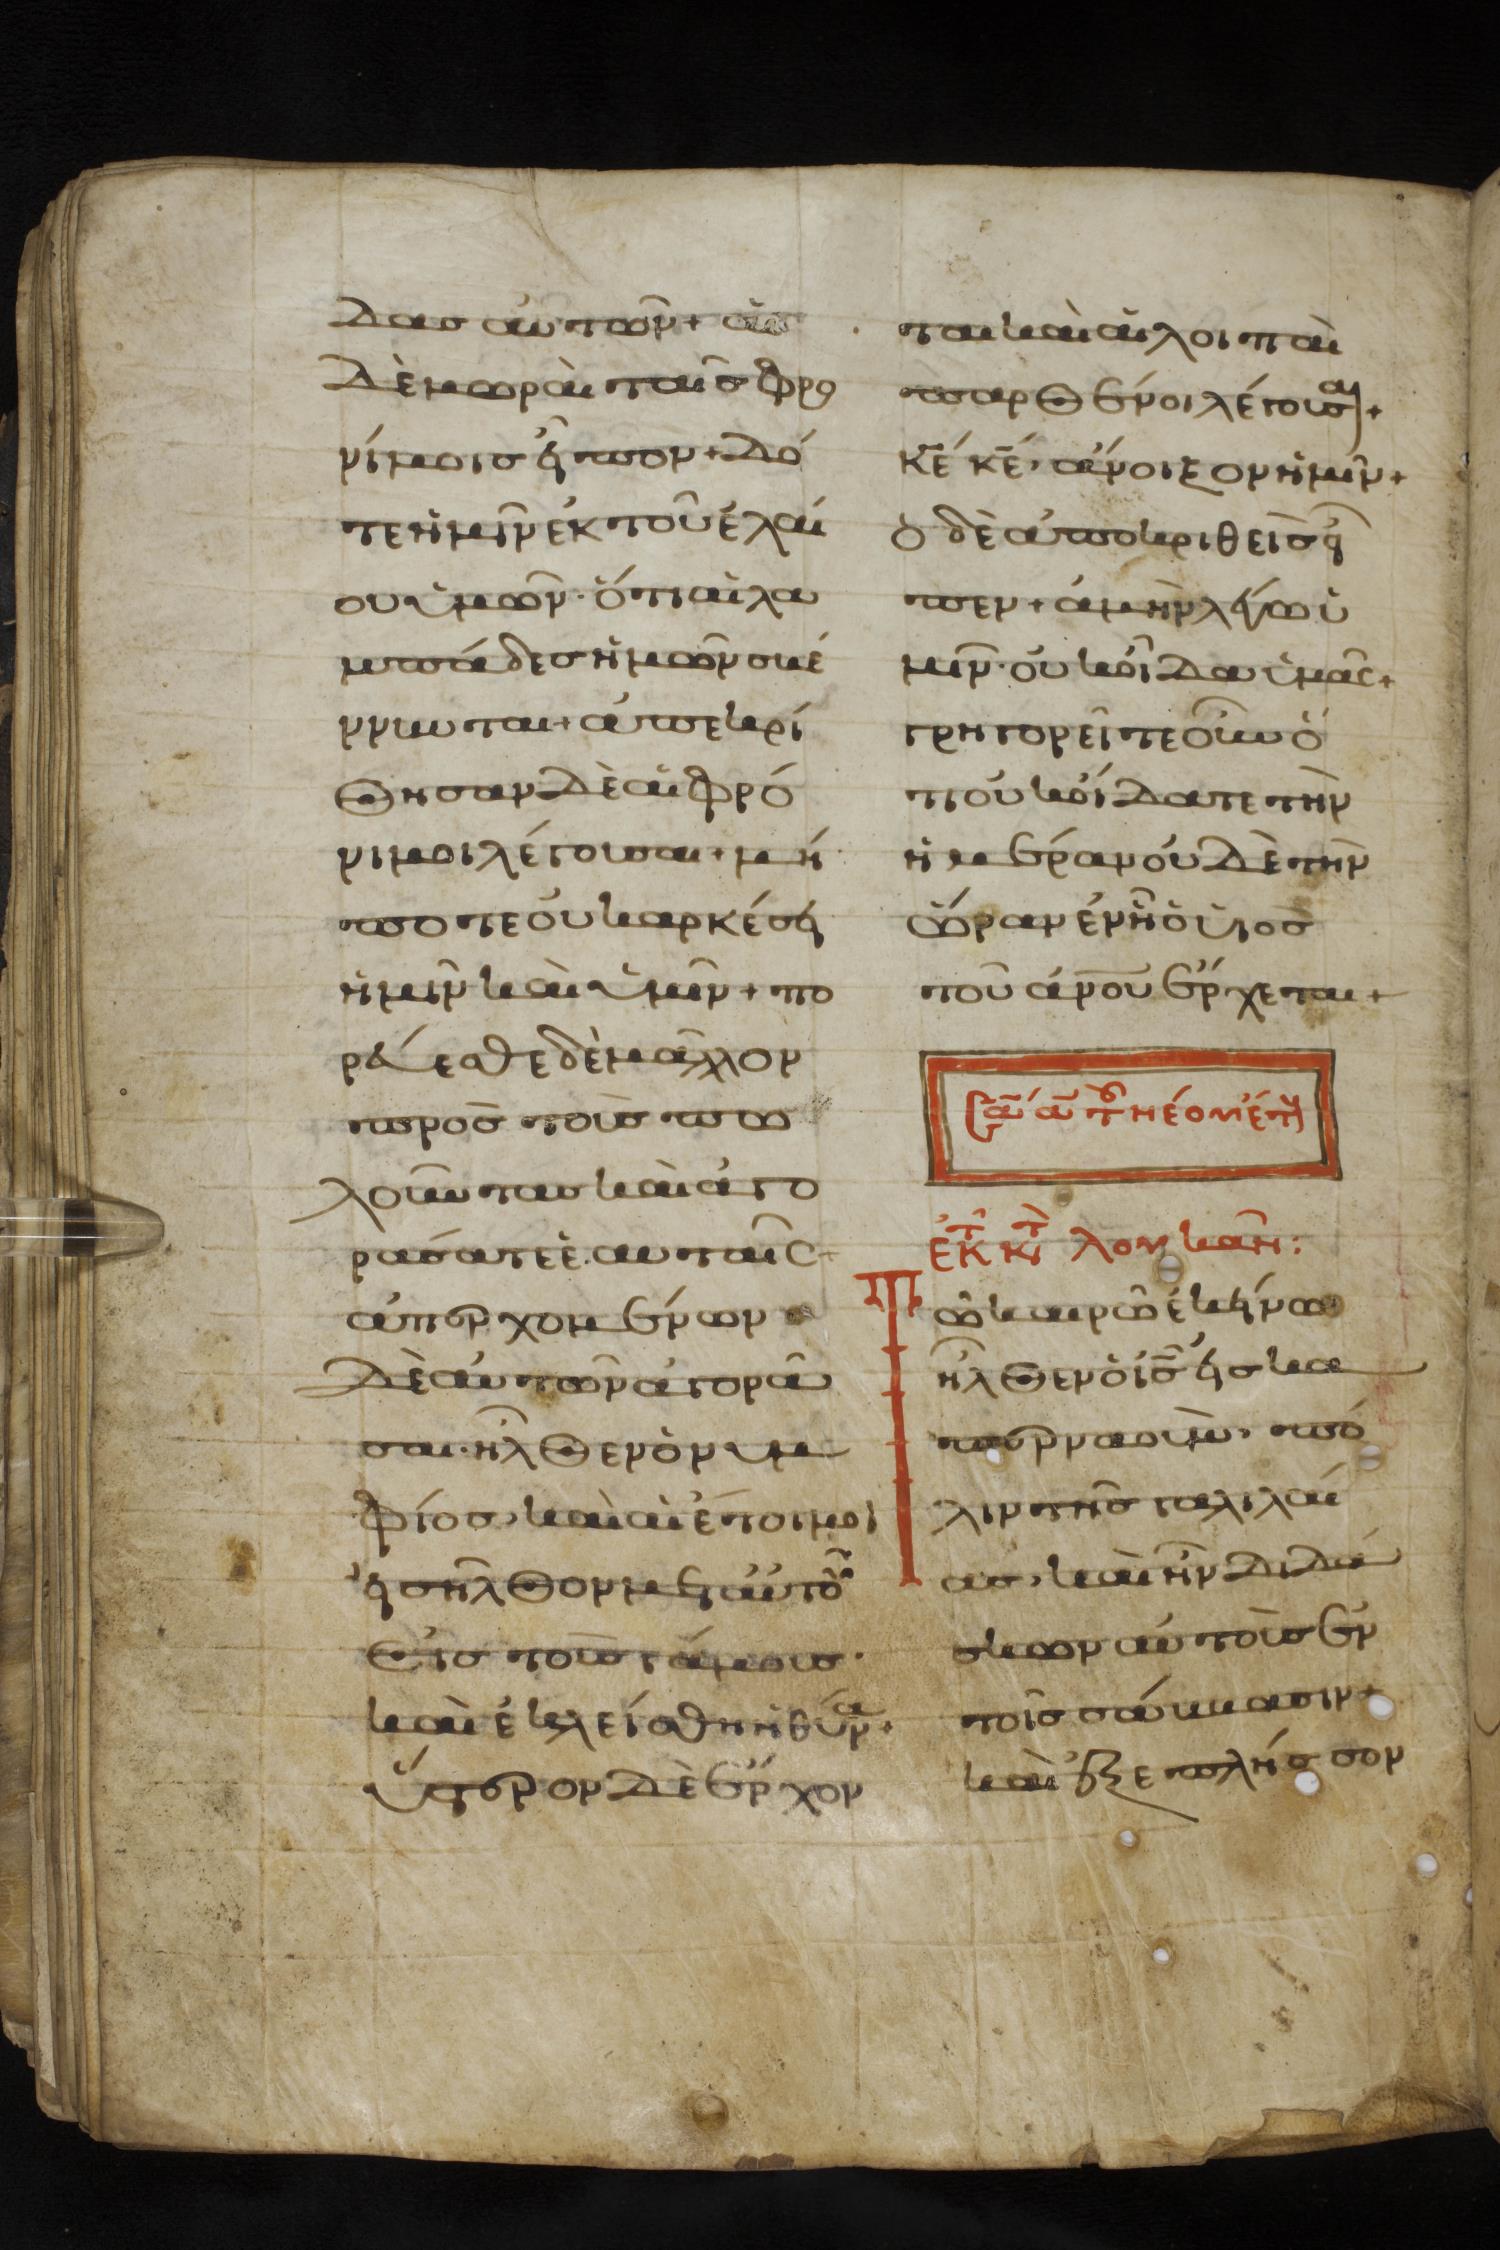 δασ αὐτῶν + αἱ
δὲ μωραὶ ταῖσ φρο
νίμοισ εἶπον + δό
τε ἡμῖν ἐκ τοῦ ἐλαί
ου ὑμῶν · ὅτι αἱ λα
μπάδεσ ἡμῶν σβέ
ννυνται + ἀπεκρί
θησαν δὲ αἱ φρό
νιμοι λέγουσαι + μή
ποτε οὐκ αρκέσει
ἡμῖν καὶ ὑμῖν + πο
ρεύεσθε δὲ μᾶλλον
προσ τοὺσ πω
λοῦντασ καὶ ἀγο
ράσατε ἑαυταῖσ +
ἀπερχομένων
δὲ αὐτῶν ἀγορᾶ
σαι · ἦλθεν ὁ νυμ
φίοσ, καὶ αἱ ἕτοιμοι
εἰσῆλθον μετ αὐτοῦ
εἰσ τοὺσ γάμουσ ·
καὶ ἐκλείσθη ἡ θύρα +
ὕστερον δὲ ἔρχον
ται καὶ αἱ λοιπαὶ
παρθένοι λέγουσαι +
κε κε, ἄνοιξον ἡμῖν +
ὁ δὲ ἀποκριθεὶσ εἶ
πεν + ἀμὴν λέγω ὑ
μῖν · οὐκ οἶδα ὑμᾶσ +
γρηγορεῖτε οὖν ὅ
τι οὐκ οἴδατε τὴν
ἡμέραν οὐδὲ τὴν
ὥραν ἐν ἧ ὁ υἱοσ
τοῦ ἀνου ἔρχεται +
νέου ἔτ
ἐκ τ κτ λουκᾶν :
Τῶ καιρῶ ἐκείνω
ἦλθεν ὁ ισ εἰσ κα
περναοὺμ, πό
λιν τῆσ γαλιλαί
ασ, καὶ ἦν διδά
σκων αὐτοὺσ ἐν
τοῖσ σάββασιν +
καὶ ἐξεπλήσσον